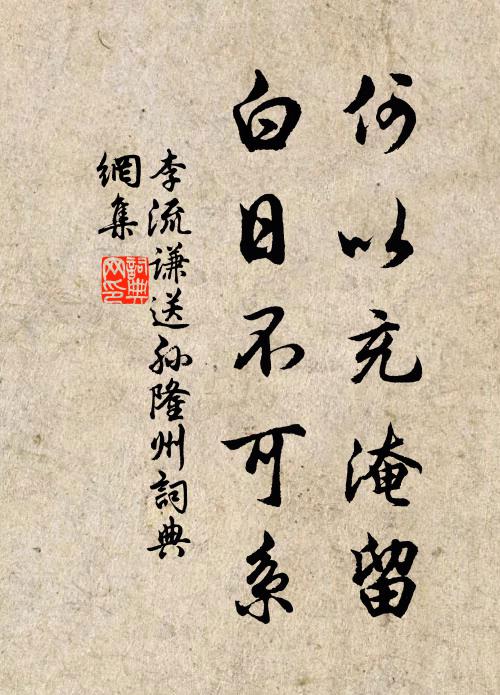 何以充淹留
白日不可系
李流谦送孙隆州詞典
網集
詞典网印